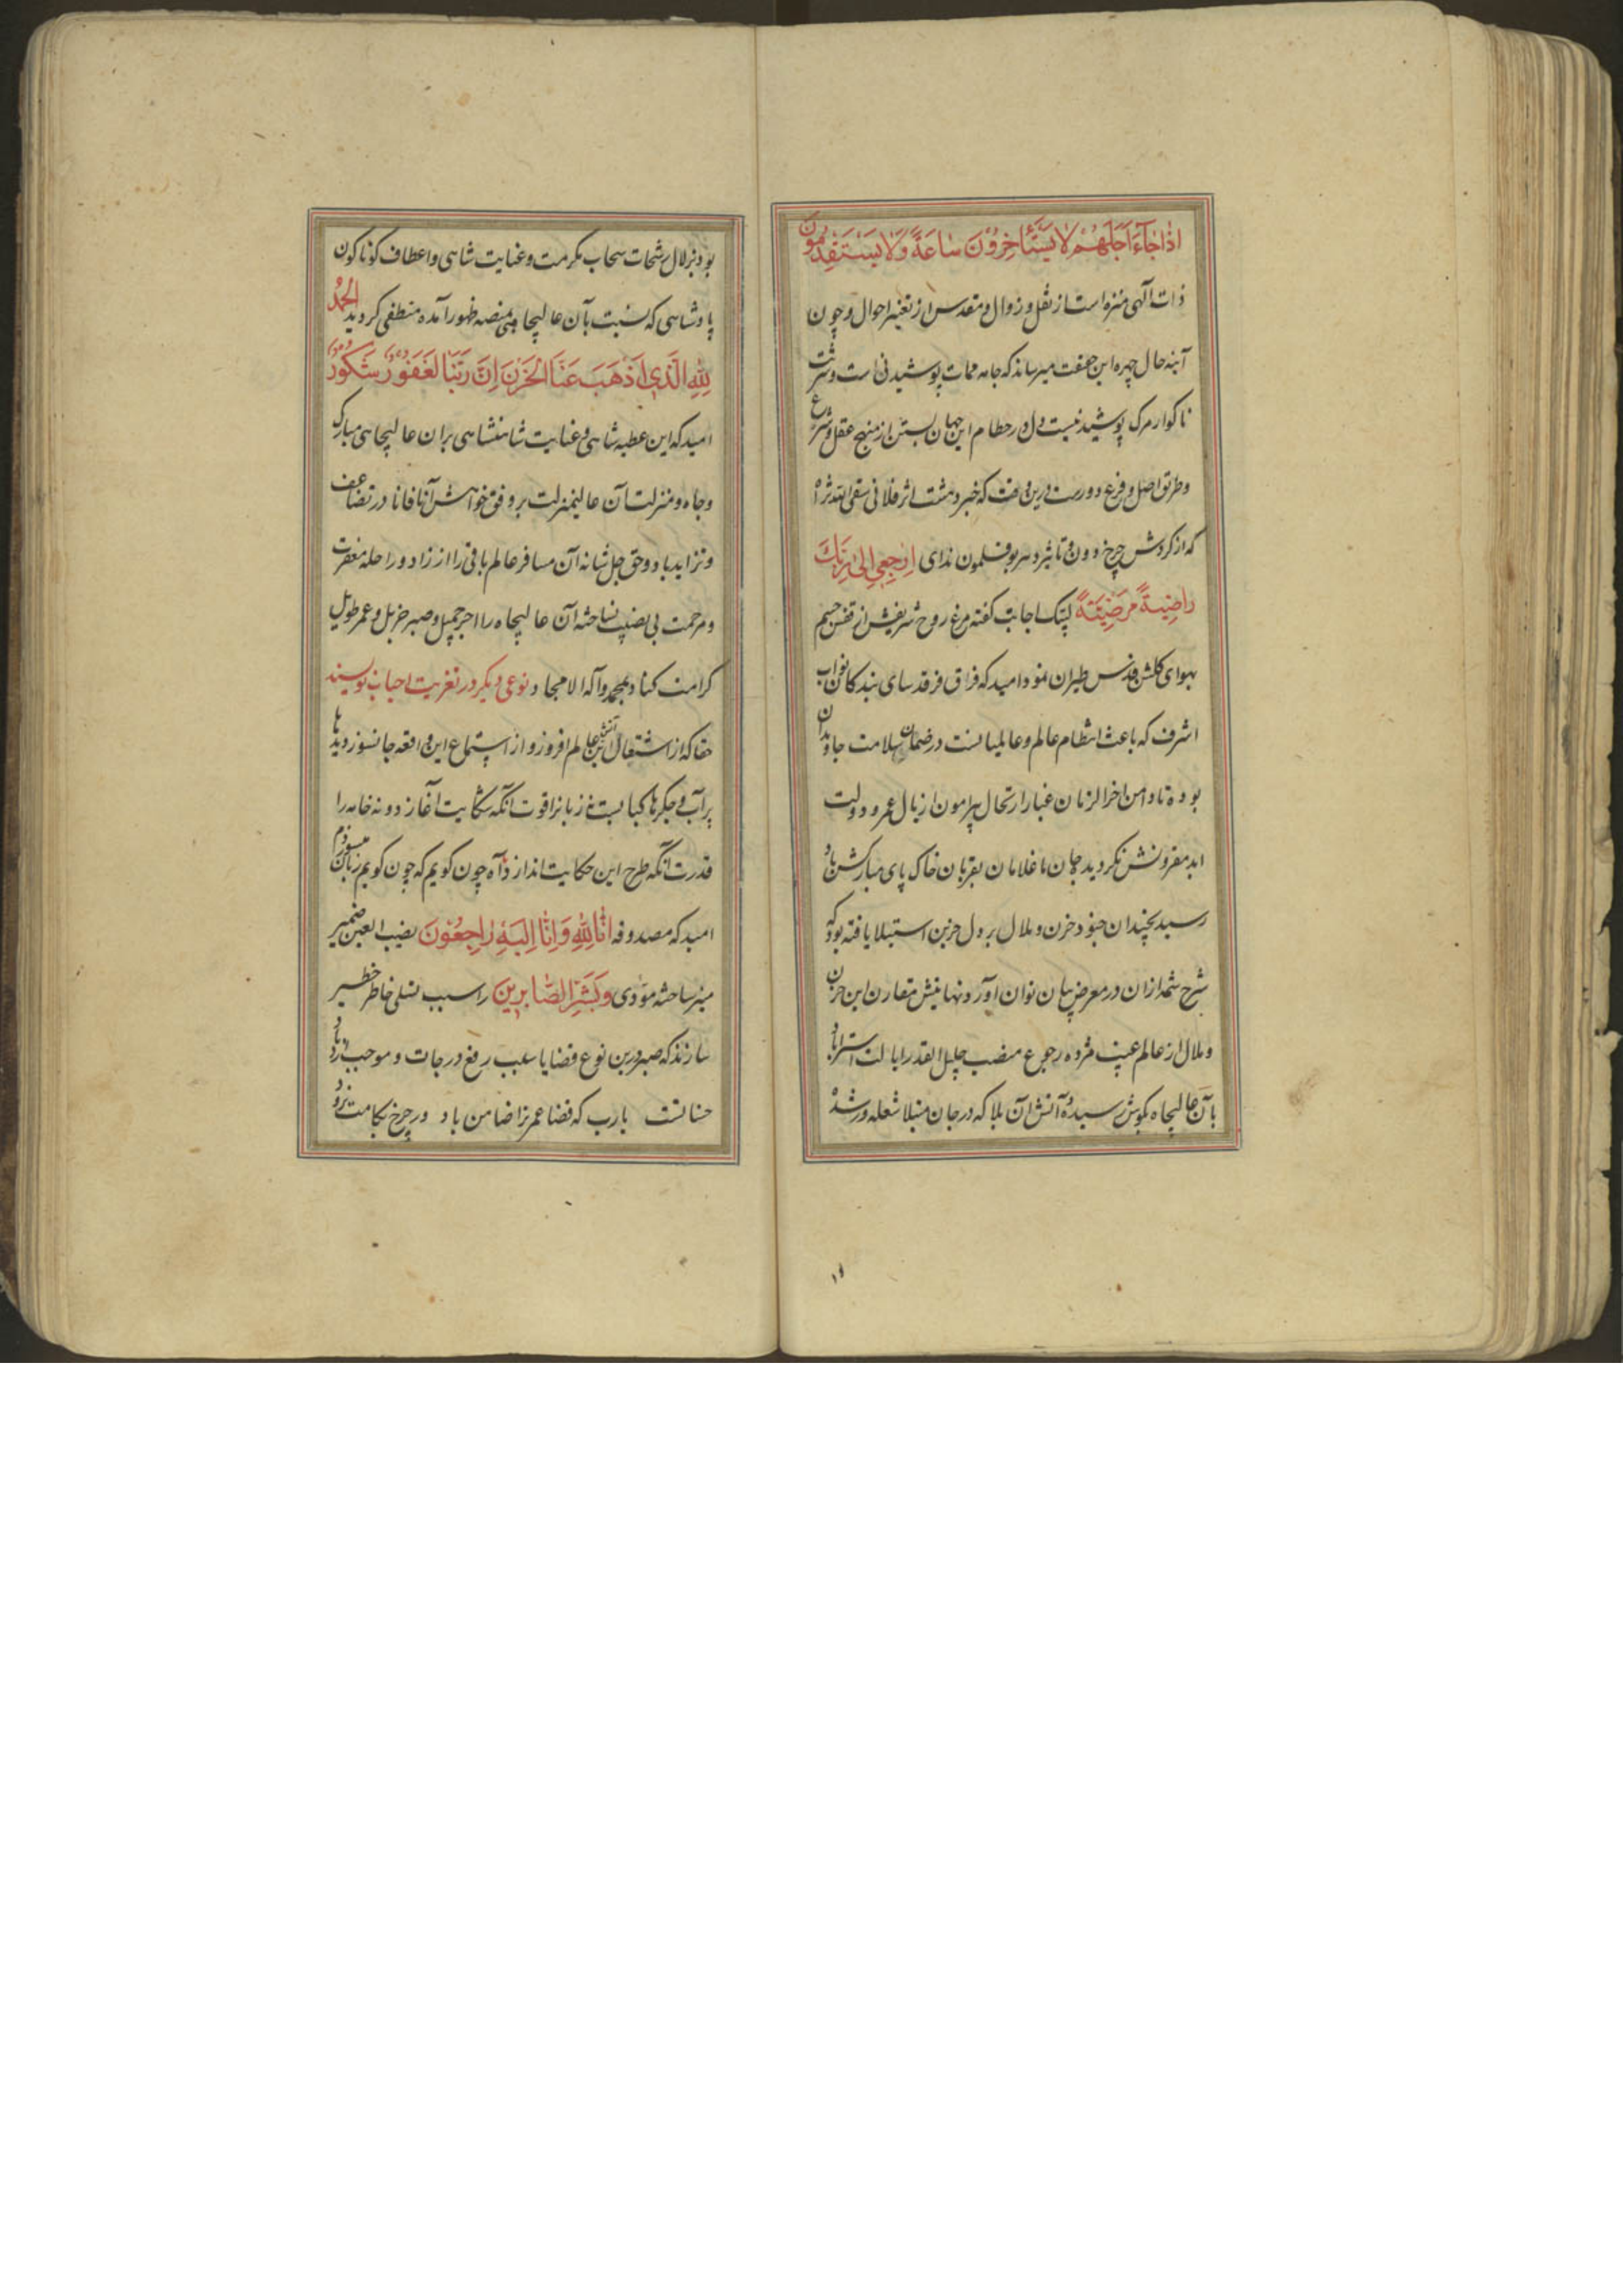 اذا جآء اجلهم لا يستأخرون ساعة ولا يستقدمون
ذات الهی منزه است از نقل و زوال و مقدس از تغیر احوال و چون
آینه حال چهره این میرساند که جامه ممات پوشیدنی است و شربت
ناکوار مرک نیست و دل در حطام این جهان بستن از منهج عقل و شرع
و طریق اصل و فرع دور است درین وقت که خبر دهشت اثر فلانی سقی الله ثراه
که از کردش چرخ دون و تاثیر دهر بوقلمون ندای ارجعی الی ربک
راضیة مرضیة لبیک اجابت کفته مرغ روح شریفش از قفس جسم
بهوای کلشن قدس طیران نمود امید که فراق فرقد سای بندکان نواب
اشرف که باعث انتظام عالم و عالمیانست در ضمان سلامت جاودان
بوده تا دامن اخرالزمان غبار ارتحال پیرامون اذیال عمر و دولت
ابد مقرونش نکردید جان ما غلامان بقربان خاک پای مبارکش باد
رسید چندان جنود حزن و ملال بر دل حزین استیلا یافته بود که
شرح شمه از ان در معرض بیان توان آورد نهایتش مقارن این حزن
و ملال از عالم غیب مژده رجوع منصب جلیل القدر ایالت استراباد
بآن عالیجاه بکوش رسیده آتش آن بلا که در جان مبتلا شعله ور شده
بود بزلال رشحات سحاب مکرمت و عنایت شاهی و اعطاف کوناکون
پادشاهی که نسبت بآن عالیجاهی بمنصه ظهور آمده منطفی کردید الحمد
لله الذی اذهب عنا الحزن ان ربنا لغفور شکور
امید که این عطیه شاهی و عنایت شاهنشاهی بران عالیجاهی مبارک
و جاه و منزلت آن عالیمنزلت بر وفق خواهش آنا فانا در تضاعف
و تزاید باد و حق جل شانه آن مسافر عالم باقی را از زاد و راحله مغفرت
و مرحمت بی نصیب نساخته آن عالیجاه را اجر جمیل و صبر جزیل و عمر طویل
کرامت کناد بمحمد و آله الامجاد نوعی دیکر در تعزیت احباب نویسند
حقا که از اشتعال این آتش عالم افروز و از استماع این واقعه جانسوز دیدها
پر آب و جکرها کبابست نه زبانرا قوت آنکه شکایت آغازد و نه خامه را
قدرت آنکه طرح این حکایت اندازد آه چون کویم که چون کویم زبان میسوزدم
امید که مصدوقه انا لله و انا الیه راجعون نصب العین ضمیر
منیر ساخته مؤدی و بشر الصابرین را سبب تسلی خاطر خطیر
سازند که صبر درین نوع قضایا سبب رفع درجات و موجب ازدیاد
حسناتست یارب که قضا عمر ترا ضامن باد در چرخ بکامت